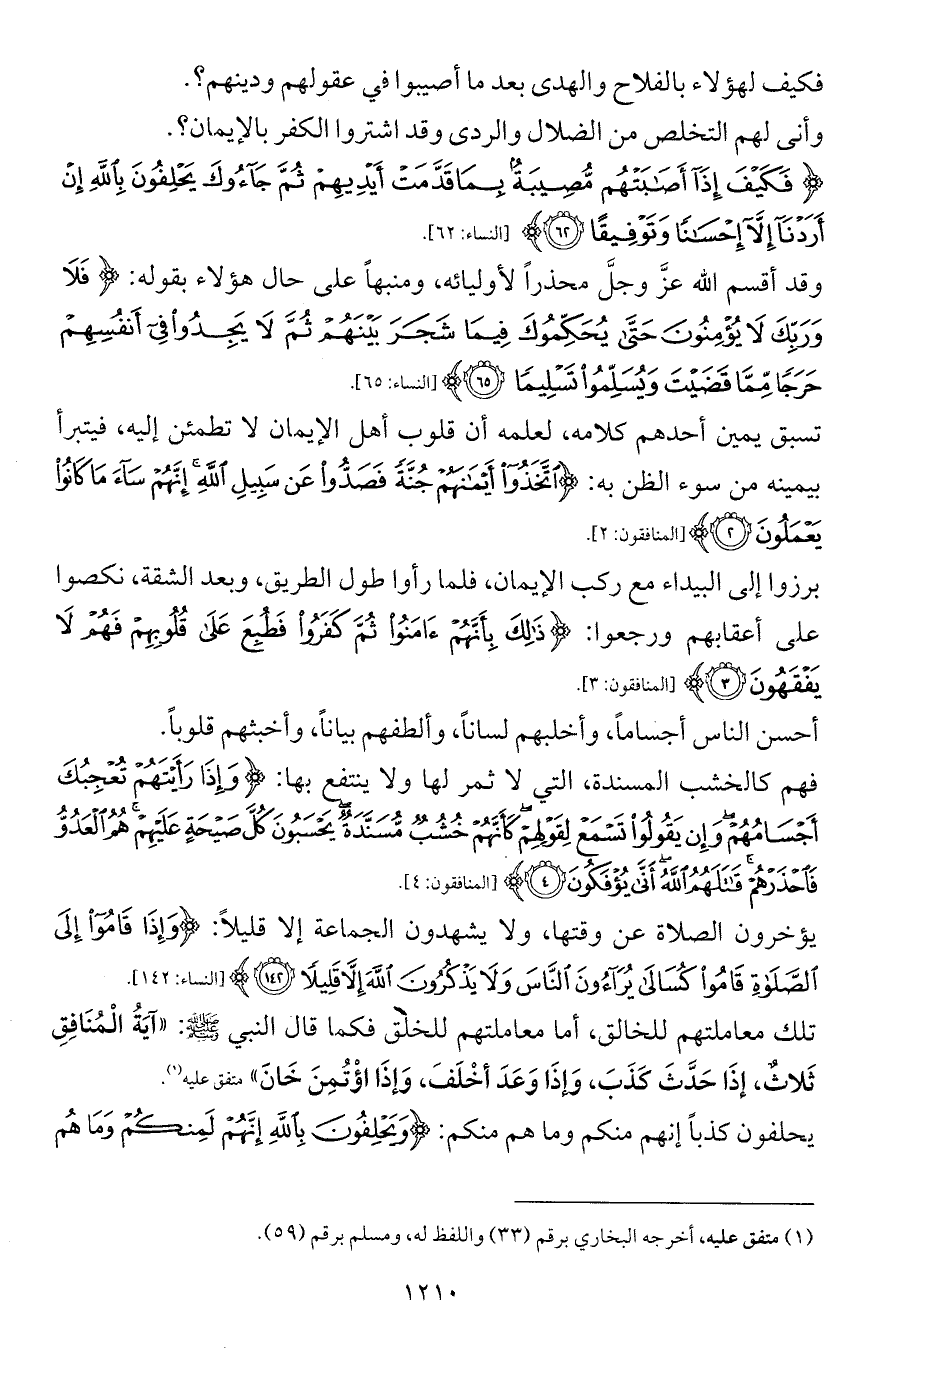 فكيف لهؤلاء بالفلاح والهدى بعد ما أصيبوا في عقولهم ودينهم؟.
وأنى لهم التخلص من الضلال والردى وقد اشتروا الكفر بالإيمان؟.
﴿ فَكَيْفَ إِذَآ أَصَٰبَتْهُم مُّصِيبَةٌۢ بِمَا قَدَّمَتْ أَيْدِيهِمْ ثُمَّ جَآءُوكَ يَحْلِفُونَ بِٱللَّهِ إِنْ
أَرَدْنَآ إِلَّآ إِحْسَٰنًا وَتَوْفِيقًا ٦٢﴾ [النساء: ٦٢].
وقد أقسم الله عزَّ وجلَّ محذراً لأوليائه، ومنبهاً على حال هؤلاء بقوله: ﴿ فَلَا
وَرَبِّكَ لَا يُؤْمِنُونَ حَتَّىٰ يُحَكِّمُوكَ فِيمَا شَجَرَ بَيْنَهُمْ ثُمَّ لَا يَجِدُوا۟ فِىٓ أَنفُسِهِمْ
حَرَجًا مِّمَّا قَضَيْتَ وَيُسَلِّمُوا۟ تَسْلِيمًا ٦٥﴾ [النساء: ٦٥].
تسبق يمين أحدهم كلامه، لعلمه أن قلوب أهل الإيمان لا تطمئن إليه، فيتبرأ
بيمينه من سوء الظن به: ﴿ٱتَّخَذُوٓا۟ أَيْمَٰنَهُمْ جُنَّةً فَصَدُّوا۟ عَن سَبِيلِ ٱللَّهِ ۚ إِنَّهُمْ سَآءَ مَا كَانُوا۟
يَعْمَلُونَ ٢﴾ [المنافقون: ٢].
برزوا إلى البيداء مع ركب الإيمان، فلما رأوا طول الطريق، وبعد الشقة، نكصوا
على أعقابهم ورجعوا: ﴿ذَٰلِكَ بِأَنَّهُمْ ءَامَنُوا۟ ثُمَّ كَفَرُوا۟ فَطُبِعَ عَلَىٰ قُلُوبِهِمْ فَهُمْ لَا
يَفْقَهُونَ ٣﴾ [المنافقون: ٣].
أحسن الناس أجساماً، وأخلبهم لساناً، وألطفهم بياناً، وأخبثهم قلوباً.
فهم كالخشب المسندة، التي لا ثمر لها ولا ينتفع بها: ﴿ وَإِذَا رَأَيْتَهُمْ تُعْجِبُكَ
أَجْسَامُهُمْ ۖ وَإِن يَقُولُوا۟ تَسْمَعْ لِقَوْلِهِمْ ۖ كَأَنَّهُمْ خُشُبٌ مُّسَنَّدَةٌ ۖ يَحْسَبُونَ كُلَّ صَيْحَةٍ عَلَيْهِمْ ۚ هُمُ ٱلْعَدُوُّ
فَٱحْذَرْهُمْ ۚ قَٰتَلَهُمُ ٱللَّهُ ۖ أَنَّىٰ يُؤْفَكُونَ ٤﴾ [المنافقون: ٤].
يؤخرون الصلاة عن وقتها، ولا يشهدون الجماعة إلا قليلاً: ﴿وَإِذَا قَامُوٓا۟ إِلَى
ٱلصَّلَوٰةِ قَامُوا۟ كُسَالَىٰ يُرَآءُونَ ٱلنَّاسَ وَلَا يَذْكُرُونَ ٱللَّهَ إِلَّا قَلِيلًا ١٤٢﴾ [النساء: ١٤٢].
تلك معاملتهم للخالق، أما معاملتهم للخلق فكما قال النبي ﷺ: «آيَةُ الْمُنَافِقِ
ثَلاثٌ، إِذَا حَدَّثَ كَذَبَ، وَإِذَا وَعَدَ أَخْلَفَ، وَإِذَا اؤْتُمِنَ خَانَ» متفق عليه(١).
يحلفون كذباً إنهم منكم وما هم منكم: ﴿وَيَحْلِفُونَ بِٱللَّهِ إِنَّهُمْ لَمِنكُمْ وَمَا هُم
(١) متفق عليه، أخرجه البخاري برقم (٣٣) واللفظ له، ومسلم برقم (٥٩).
١٢١٠